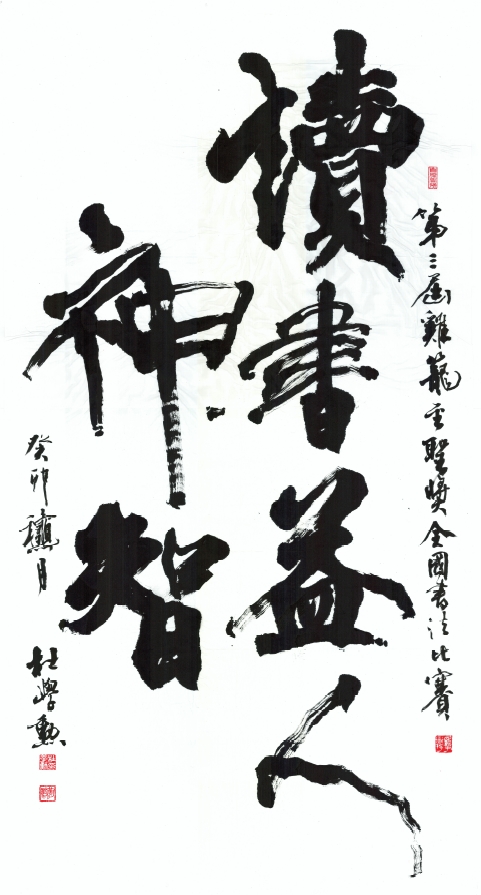 第三屆雞籠至聖獎全國書法比賽
讀書益人
神智
癸卯龝月
杜學勳